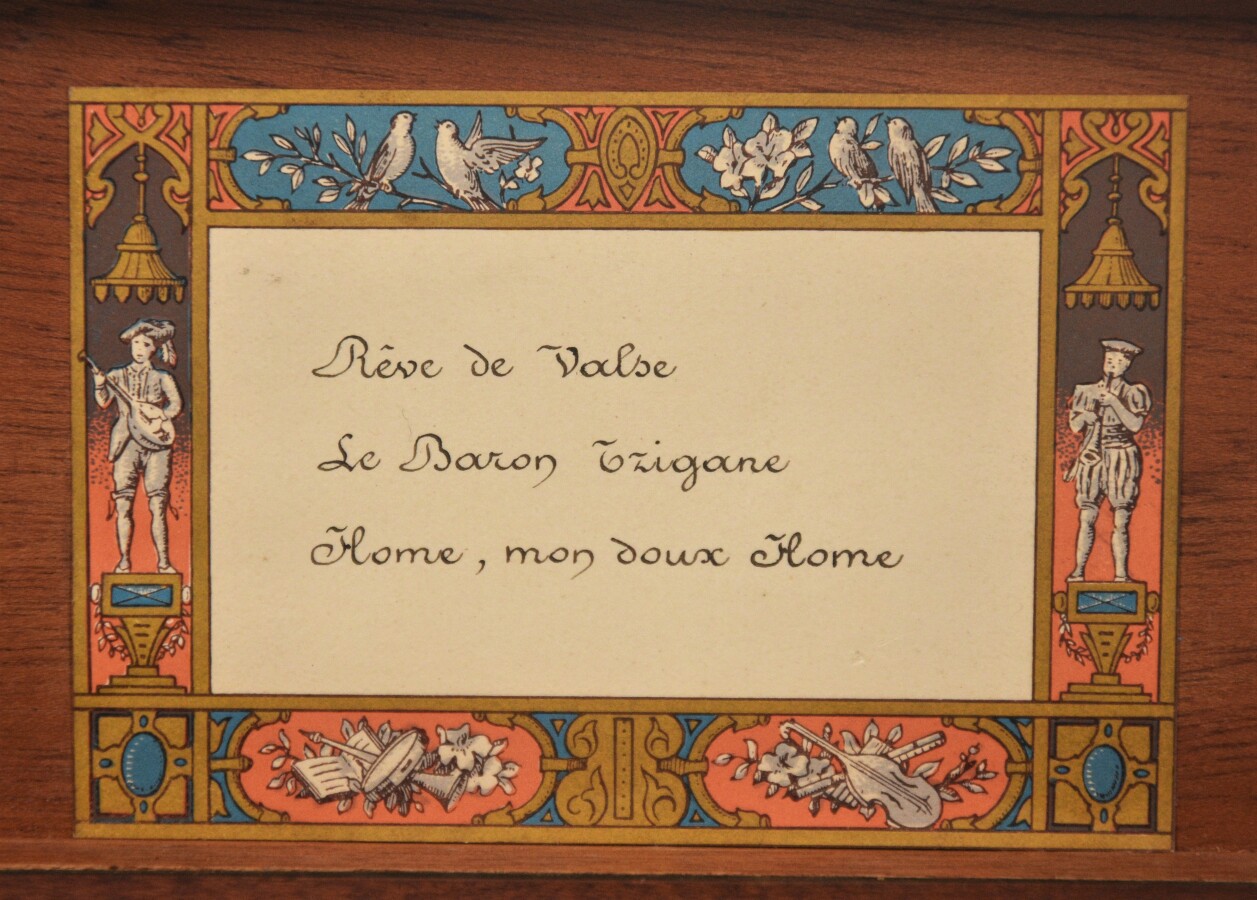 Rêve de Valse
Le Baron Tzigane
Home, mon doux Home